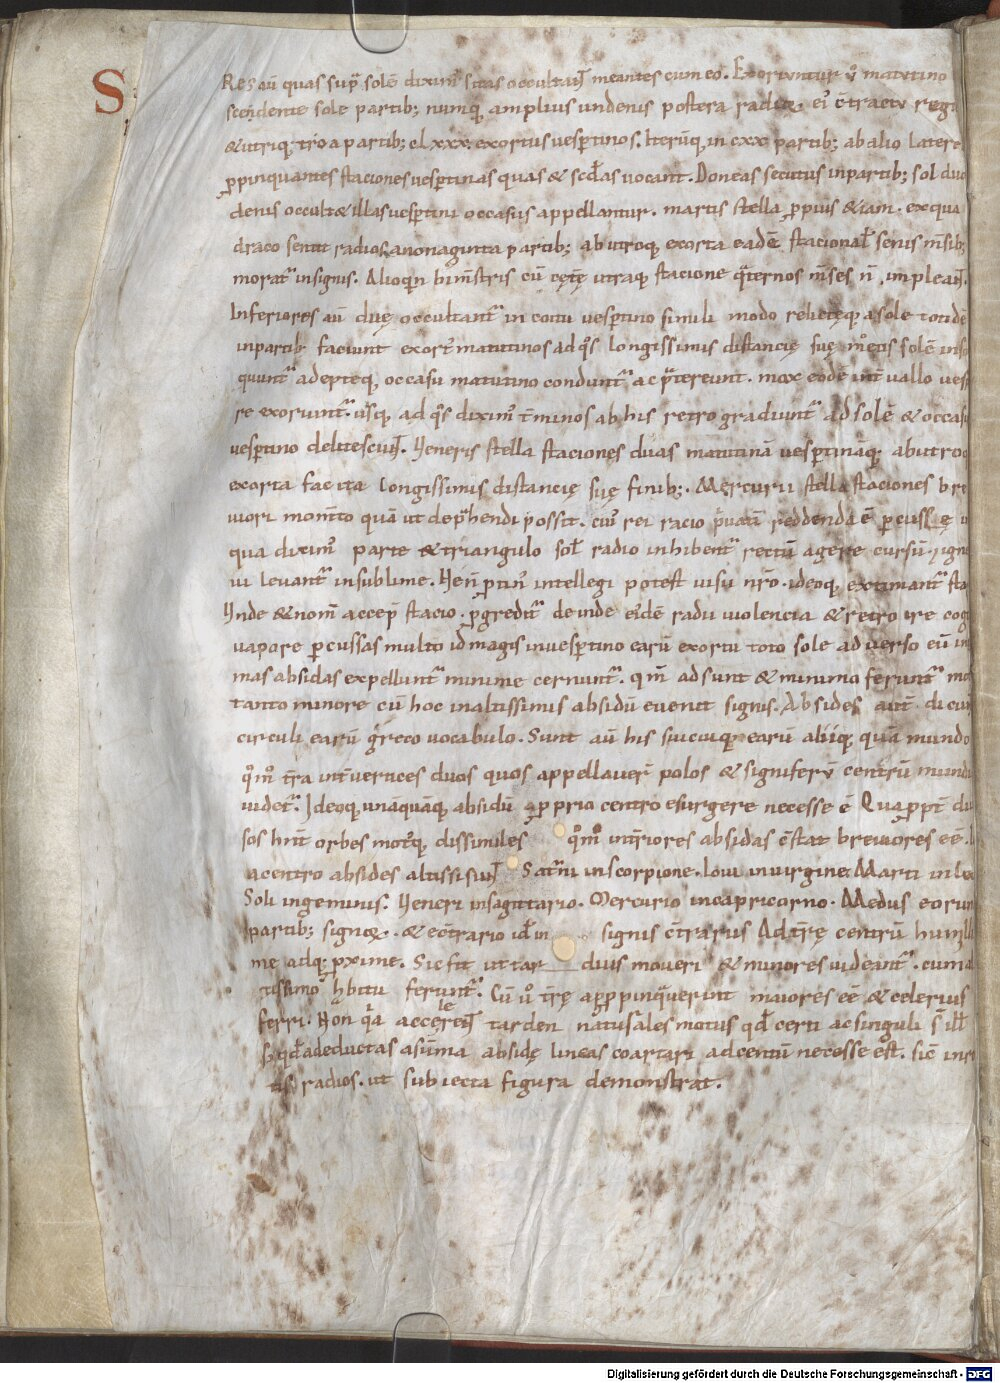 S
Res aū quas supra solē diximꝰ sitas occultant meantes cum eo. Exoriuntur v̊ matutino
scendente sole partib; numqȝ amplius undenis postera radior. eiꝰ cͨtractu regu
&utriqȝ; tro a partib; cLxxx. exortus uesꝑtinos. Iterūqȝ in cxx partib; ab alio latere
ꝓpinquantes staciones uesꝑtinas quas & scd̄as uocant. Donec assecutus in partib; sol duo
denis occult& illas uesꝑtini occasus appellantur. martis stella ꝓpius & iam. ex qua
draco sentit radios. anonaginta partib; ab utroqȝ exorta eadē stacional senis m̄sib;
moratᷓ in signis. Alioqn bim̄stris eū cętę utraqȝ stacione qᷓternos m̄ses n̄ impleant.
Inferiores aū duę occultantᷓ in coitu uespertino simili modo relictęqȝ a sole totidē
in partib; faciunt exortᷣ matutinos ad qͦs longissimis distancię suę metis solē inse
quuntᷓ adepteqȝ occasu matutino condunt ac pᷓtereunt. mox eodē int̄uallo ues
re exoriuntᷓ. usqȝ ad qͦs diximꝰ t̄minos ab his retro gradiuntᷓ ad solē & occasu
uesꝑtino delitescunt. Ueneris stella staciones duas matutinā uesꝑtināqȝ ab utroqȝ
exorta facit a longissimis distancię suę finib;. Mercurii stella staciones bre
uiori mom̄to quā ut dep̄hendi possit. cuiꝰ rei racio p̄uatī reddenda ē ꝑcussę in
qua diximꝰ parte & triangulo solꝭ radio inhibentᷓ rectū agere cursū. igne
ui leuantᷓ in sublime. Hen̄ ꝓtinꝰ intellegi potest uisu nr̄o. ideoqȝ extimantᷓ sta
Unde & nom̄ accep̄ stacio. ꝓgreditᷓ deinde eiꝰdē radii uiolencia & retro ire cogi
uapore ꝑcussas multo id magis in uesꝑtino earū exortu toto sole aduerso cū in
mas absidas expelluntᷓ minime cernuntᷓ. qm̄ adsunt & minimo feruntᷓ mo
tanto minore cū hoc in altissimis absidū euenit signis. Absides aut̄ dicun
circuli earū gͬeco uocabulo. Sunt aū his suę cuiqȝ earū aliiqȝ quā mundo
qm̄ t̄ra int̄ uertices duos quos appellauer̄ polos & signiferū centrū mundi
uidetᷓ. Ideoqȝ unāquāqȝ absidū a ꝓprio centro exurgere necesse ē Quapropt̄ di
sos hn̄t orbes motꝰqȝ dissimiles qm̄ int̄riores absidas cͨstat breuiores eē.
a centro absides altissimę Saturni in scorpione. Ioui in uirgine. Marti in leo
Soli in geminis. Ueneri in sagittario. Mercurio in capricorno. Mediis eorum
partib; signorꝫ. & ecͨtrario id̄ in signis cͨtrarius Ad t̄rę centrū humilli
me adqȝ ꝓxime. Sic fit ut tardius moueri & minores uideantᷓ. cum al
tissimo h̄bitu feruntᷓ. Cū u̇ t̄rę appropinquauerint maiores eē & celerius
ferri. Non qᷓa accelerent tardent naturales motus qd̄ certi ac singuli sͭ ill
sꝫ qd̄ adeductas asūma absidę lineas coartari ad centū necesse est. sic in ro
tis radios. ut subiecta figura demonstrat.
Digitalisierung gefördert durch die Deutsche Forschungsgemeinschaft - DFG